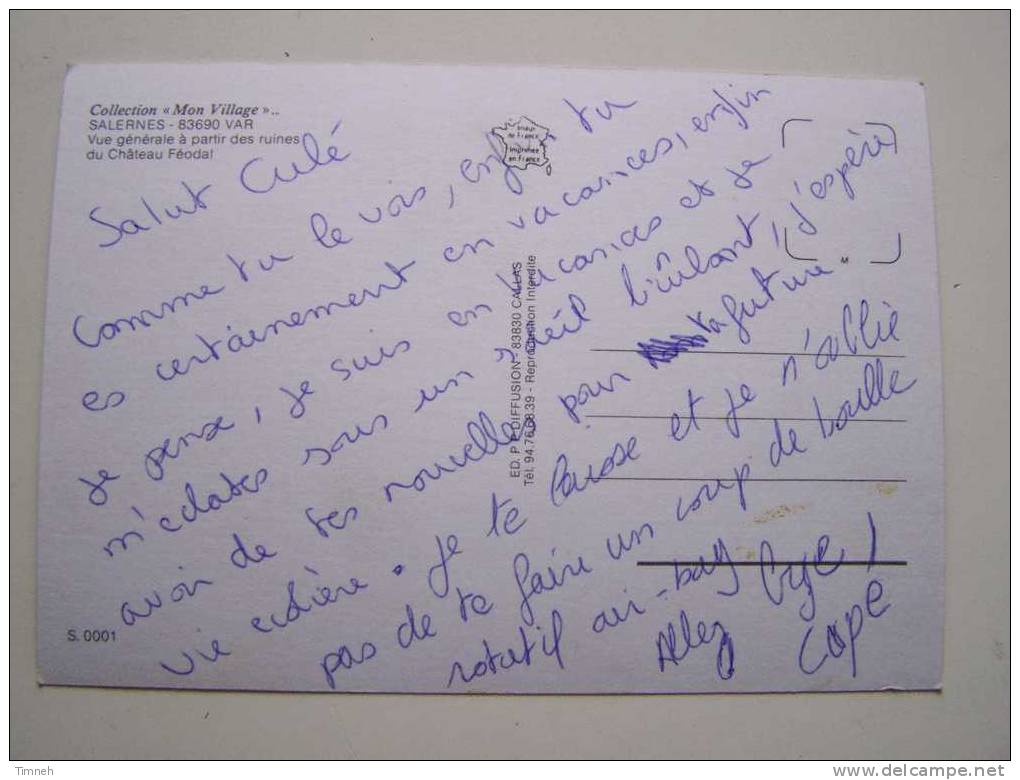 Collection « Mon Village »..
SALERNES - 83690 VAR
Vue générale à partir des ruines
du Château Féodal
Image de France
Imprimée en France
ED. P.P. DIFFUSION - 83830 CALLAS
Tél. 94.76.68.39 - Reproduction Interdite
M
S. 0001
Salut Culé
Comme tu le vois, enfin tu
es certainement en vacances, enfin
je pense, je suis en vacances et je
m'eclates sous un soleil brûlant, j'espère
avoir de tes nouvelles pour ta future
vie . Je te laisse et je n'oublie
pas de te faire un coup de boulle
rotatif air-bag
Allez Bye !
Cope
Timneh
www.delcampe.net